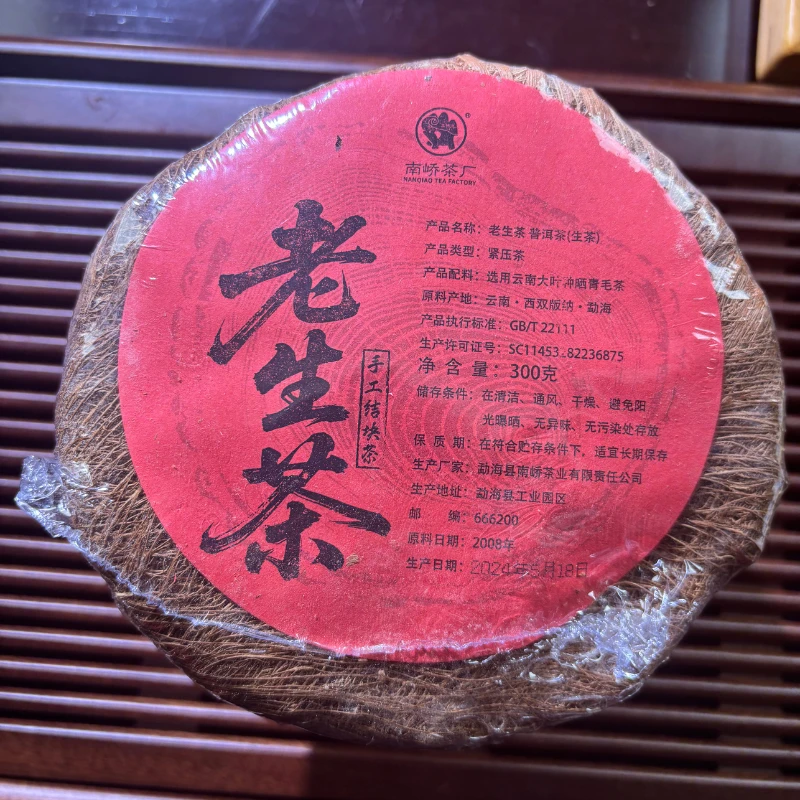 南峤茶厂
NANQIAO TEA FACTORY
老生茶
手工结块茶
产品名称：老生茶 普洱茶(生茶)
产品类型：紧压茶
产品配料：选用云南大叶种晒青毛茶
原料产地：云南·西双版纳·勐海
产品执行标准：GB/T 22111
生产许可证号：SC11453 82236875
净含量：300克
储存条件：在清洁、通风、干燥、避免阳
光曝晒、无异味、无污染处存放
保质期：在符合贮存条件下，适宜长期保存
生产厂家：勐海县南峤茶业有限责任公司
生产地址：勐海县工业园区
邮编：666200
原料日期：2008年
生产日期：2024年5月18日